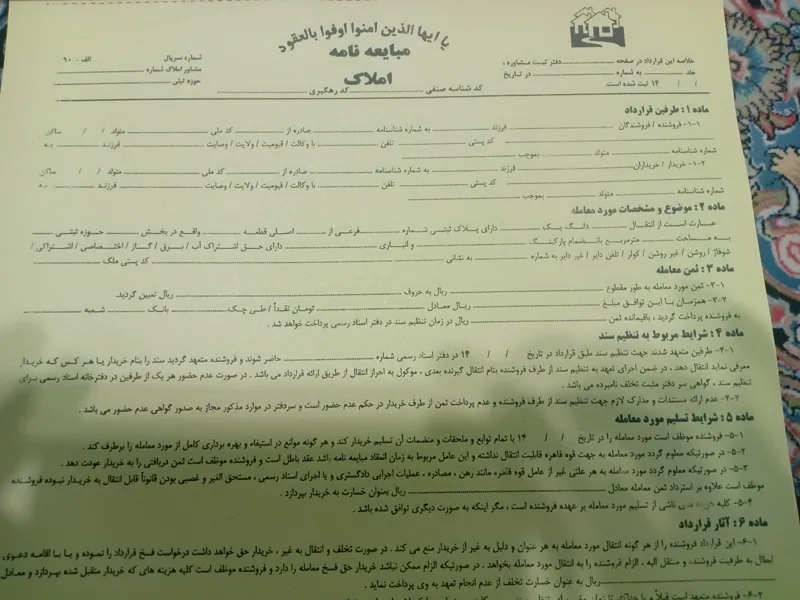 یا ایها الذین امنوا اوفوا بالعقود
مبایعه نامه
املاک
کد شناسه صنفی ........ کد رهگیری ........
شماره سریال الف - ۹۰
مشاور املاک شماره ........
حوزه ثبتی ........
خلاصه این قرارداد در صفحه ........ دفتر ثبت مشاوره ،
جلد ........ به شماره ........ در تاریخ
/ / ۱۴ ثبت شده است.
ماده ۱ : طرفین قرارداد
۱-۱- فروشنده / فروشندگان ........ فرزند ........ به شماره شناسنامه ........ صادره از ........ کد ملی ........ متولد / / ساکن
........ کد پستی ........ تلفن ........ با وکالت / قیومیت / ولایت / وصایت ........ فرزند ........ به
شماره شناسنامه ........ متولد ........ بموجب ........
۱-۲- خریدار / خریداران ........ فرزند ........ به شماره شناسنامه ........ صادره از ........ کد ملی ........ متولد / / ساکن
........ کد پستی ........ تلفن ........ با وکالت / قیومیت / ولایت / وصایت ........ فرزند ........ به
شماره شناسنامه ........ متولد ........ بموجب ........
ماده ۲ : موضوع و مشخصات مورد معامله
عبارت است از انتقال ........ دانگ یک ........ دارای پلاک ثبتی شماره ........ فرعی از ........ اصلی قطعه ........ واقع در بخش ........ حوزه ثبتی ........
به مساحت ........ مترمربع بانضمام پارکینگ ........ و انباری ........ دارای حق اشتراک آب / برق / گاز / اختصاصی / اشتراکی /
شوفاژ / روشن / غیر روشن / کولر / تلفن دایر / غیر دایر به شماره ........ به نشانی ........ کد پستی ملک ........
ماده ۳ : ثمن معامله
۳-۱- ثمن مورد معامله به طور مقطوع ........ ریال به حروف ........ ریال تعیین گردید.
۳-۲- همزمان با این توافق مبلغ ........ ریال معادل ........ تومان نقداً / طی چک ........ بانک ........ شعبه ........
به فروشنده پرداخت گردید ، باقیمانده ثمن ........ ریال در زمان تنظیم سند در دفتر اسناد رسمی پرداخت خواهد شد .
ماده ۴ : شرایط مربوط به تنظیم سند
۴-۱- طرفین متعهد شدند جهت تنظیم سند طبق قرارداد در تاریخ / / ۱۴ در دفتر اسناد رسمی شماره ........ حاضر شوند و فروشنده متعهد گردید سند را بنام خریدار یا هر کس که خریدار
معرفی نماید انتقال دهد ، در ضمن اجرای تعهد به تنظیم سند از طرف فروشنده بنام انتقال گیرنده بعدی ، موکول به احراز انتقال از طریق ارائه قرارداد می باشد . در صورت عدم حضور هر یک از طرفین در دفترخانه اسناد رسمی برای
تنظیم سند ، گواهی سر دفتر مثبت تخلف نامبرده می باشد .
۴-۲- عدم ارائه مستندات و مدارک لازم جهت تنظیم سند از طرف فروشنده و عدم پرداخت ثمن از طرف خریدار در حکم عدم حضور است و سردفتر در موارد مذکور مجاز به صدور گواهی عدم حضور می باشد .
ماده ۵ : شرایط تسلیم مورد معامله
۵-۱- فروشنده موظف است مورد معامله را در تاریخ / / ۱۴ با تمام توابع و ملحقات و منضمات آن تسلیم خریدار کند و هر گونه موانع در استیفاء و بهره برداری کامل از مورد معامله را برطرف کند .
۵-۲- در صورتیکه معلوم گردد مورد معامله به جهت قوه قاهره قابلیت انتقال نداشته و این عامل مربوط به زمان انعقاد مبایعه نامه باشد عقد باطل است و فروشنده موظف است ثمن دریافتی را به خریدار عودت دهد .
۵-۳- در صورتیکه معلوم گردد مورد معامله به هر علتی غیر از عامل قوه قاهره مانند رهن ، مصادره ، عملیات اجرایی دادگستری و یا اجرای اسناد رسمی ، مستحق الغیر و غصبی بودن قانوناً قابل انتقال به خریدار نبوده فروشنده
موظف است علاوه بر استرداد ثمن معامله معادل ........ ریال بعنوان خسارت به خریدار بپردازد .
۵-۴- کلیه هزینه های ناشی از تسلیم مورد معامله بر عهده فروشنده است ، مگر اینکه به صورت دیگری توافق شده باشد .
ماده ۶ : آثار قرارداد
۶-۱- این قرارداد فروشنده را از هر گونه انتقال مورد معامله به هر عنوان و دلیل به غیر از خریدار منع می کند . در صورت تخلف و انتقال به غیر ، خریدار حق خواهد داشت درخواست فسخ قرارداد را نموده و یا با اقامه دعوی
ابطال به طرفیت فروشنده و منتقل الیه ، الزام فروشنده را به انتقال مورد معامله بخواهد . در صورتیکه الزام ممکن نباشد خریدار حق فسخ معامله را دارد و فروشنده موظف است کلیه هزینه های که خریدار متقبل شده بپردازد و معادل
........ ریال به عنوان خسارت تخلف از عدم انجام تعهد به وی پرداخت نماید .
۶-۲- فروشنده متعهد است قبلاً و یا حداکثر تا زمان